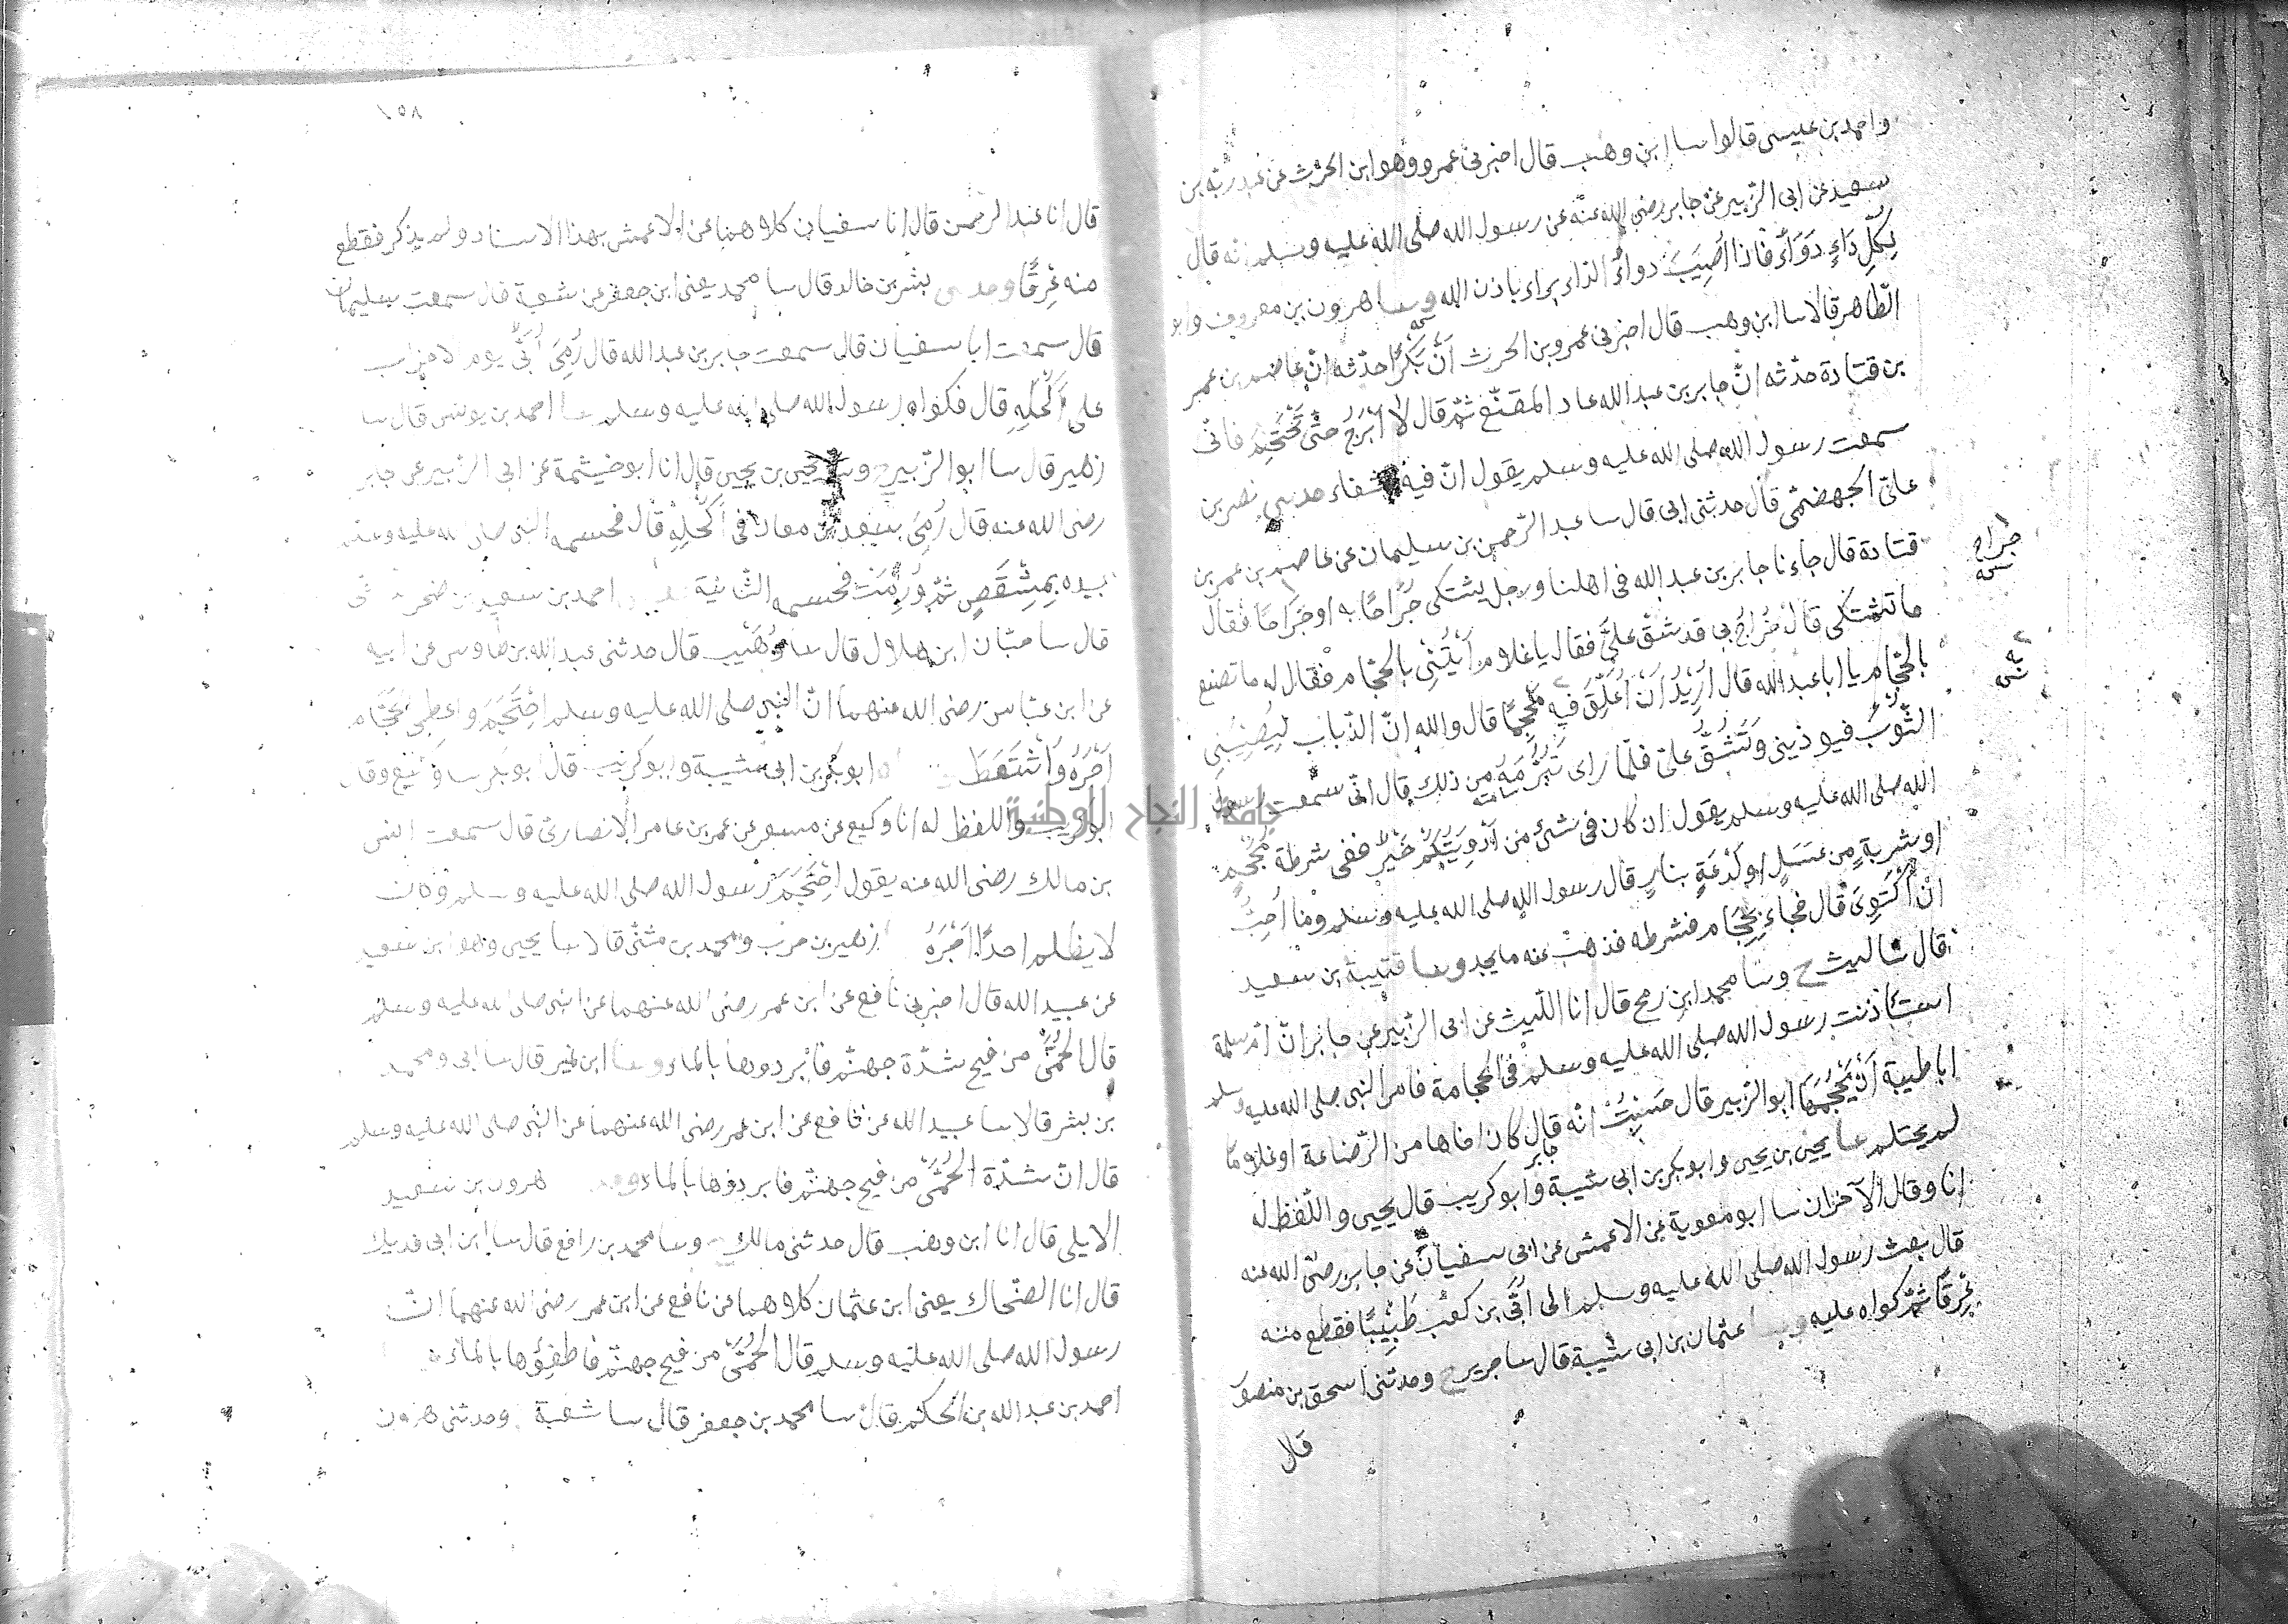 واحمد بن عيسى قالوا سا ابن وهب قال اخبرنى عمرو وهو ابن الحرث عن عبد ربه بن
سعيد عن ابى الزبير عن جابر رضى الله عنه عن رسول الله صلى الله عليه وسلم انه قال
لِكُلِّ دَاءٍ دَوَاءٌ فاذا اُصِيبَ دواءُ الدّاء براء باذن الله وسا هرون بن معروف وابو
الطّاهر قالا سا ابن وهب قال اخبرنى عمرو بن الحرث اَنَّ بُكَيْرًا حدّثه انّ عاصم بن عمر
بن قتادة حدّثه انّ جابر بن عبد الله عاد المقنّع ثمّ قال لَا اَبْرَحُ حَتّى تَحْتَجِمَ فانّى
سمعت رسول الله صلى الله عليه وسلم يقول انّ فيه شفاء حدثنى نصر بن
علىّ الجهضمّى قال حدثنى ابى قال سا عبد الرّحمن بن سليمان عن عاصم بن عمر بن
قتادة قال جاءنا جابر بن عبد الله فى اهلنا ورجل يشتكى جُرَاحًا به او جِرَاحًا فقال
ما تشتكى قال خُرَاجٌ بى قد شقّ علىَّ فقال يا غلام اَيْتِنِى بالحجّام فقال له ما تصنع
بالحجّام يا ابا عبد الله قال اُرِيْدُ اَنْ اُعَلِّقَ فيه مِحْجَمًا قال والله انّ الذّباب ليُصِيْبُنِى
الثّوبُ فيوذينى وَتَشُقُّ علىّ فلمّا راى تَبَرُّمَهُ من ذلك قال انّى سمعت رسول
الله صلى الله عليه وسلم يقول ان كان فى شىء من اَدْوِيَتِكُمْ خَيْرٌ ففى شرطة مِحْجَمٍ
او شربةٍ من عَسَلٍ او لَذْعَةٍ بنارٍ قال رسول الله صلى الله عليه وسلم وما اُحِبُّ
انْ اَكْتَوِىَ قال فجاء بحجّام فشرطه فذهب عنه ما يجد وسا قتيبة بن سعيد
قال سا ليث ح وسا محمد ابن رمح قال انا اللّيث عن ابى الزبير عن جابر انّ امّ سلمة
استأذنت رسول الله صلى الله عليه وسلم فى الحجامة فامر النبى صلى الله عليه وسلم
ابا طيبة اَنْ يَحْجُمَهَا ابو الزبير قال حَسِبْتُ انّه قال كان اخاها من الرّضاعة او غلامًا
جابر
لم يحتلم سا يحيى بن يحيى وابو بكر بن ابى شيبة وابو كريب قال يحيى واللّفظ له
انا وقال الآخران سا ابو معوية عن الاعمش عن ابى سفيان عن جابر رضى الله عنه
قال بعث رسول الله صلى الله عليه وسلم الى اُبَىّ بن كعب طَبِيْبًا فقطع منه
عِرْقًا ثمّ كواه عليه وسا عثمان بن ابى شيبة قال سا جرير ح وحدثنى اسحق بن منصور
قال
جراح
به
١٥٨
قال انا عبد الرحمن قال انا سفيان كلاهما عن الاعمش بهذا الاسناد ولم يذكر فقطع
منه عِرقًا وحدثنى بشر بن خالد قال سا محمد يعنى ابن جعفر عن شعبة قال سمعت سليمان
قال سمعت ابا سفيان قال سمعت جابر بن عبد الله قال رُمِىَ اُبَىٌّ يوم الاحزاب
على اَكْحَلِهِ قال فكواه رسول الله صلى الله عليه وسلم سا احمد بن يونس قال سا
زهير قال سا ابو الزّبير ح وسا يحيى بن يحيى قال انا ابو خيثمة عن ابى الزّبير عن جابر
رضى الله عنه قال رُمِىَ سعد بن معاذ فى اَكْحَلِهِ قال فحسمه النبى صلى الله عليه وسلم
بيده بِمِشْقَصٍ ثمّ وَرِمَتْ فحسمه الثّانية احمد بن سعيد بن صخر
قال سا حبّان ابن هلال قال سا وُهَيْب قال حدثنى عبد الله بن طاوس عن ابيه
عن ابن عبّاس رضى الله عنهما انّ النبى صلى الله عليه وسلم اِحْتَجَمَ واعطى الحَجَّام
اَجْرَهُ وَاسْتَعَطَ ابو بكر بن ابى شيبة وابو كريب قال ابو بكر سا وكيع وقال
ابو كريب واللفظ له انا وكيع عن مسعر عن عمر بن عامر الانصارىّ قال سمعت انس
بن مالك رضى الله عنه يقول اِحْتَجَمَ رسول الله صلى الله عليه وسلم وكان
لا يظلم احدًا اَجْرَهُ زهير بن حرب ومحمد بن مثنّى قالا سا يحيى وهو ابن سعيد
عن عبيد الله قال اخبرنى نافع عن ابن عمر رضى الله عنهما عن النبى صلى الله عليه وسلم
قال الحُمَّى من فيح شدّة جهنّم فَابْردوها بالماء وسا ابن نمير قال سا ابى ومحمد
بن بشر قالا سا عبيد الله عن نافع عن ابن عمر رضى الله عنهما عن النّبى صلى الله عليه وسلم
قال انّ شدّة الحُمَّى من فيح جهنّم فابردوها بالماء هرون بن سعيد
الايلى قال انا ابن وهب قال حدثنى مالك ح وسا محمد بن رافع قال سا ابن ابى فديك
قال انا الضّحاك يعنى ابن عثمان كلاهما عن نافع عن ابن عمر رضى الله عنهما انّ
رسول الله صلى الله عليه وسلم قال الحُمَّى من فيح جهنّم فاطفِؤُها بالماء
احمد بن عبد الله بن الحكم قال سا محمد بن جعفر قال سا شعبة وحدثنى هرون
جامعة النجاح الوطنية